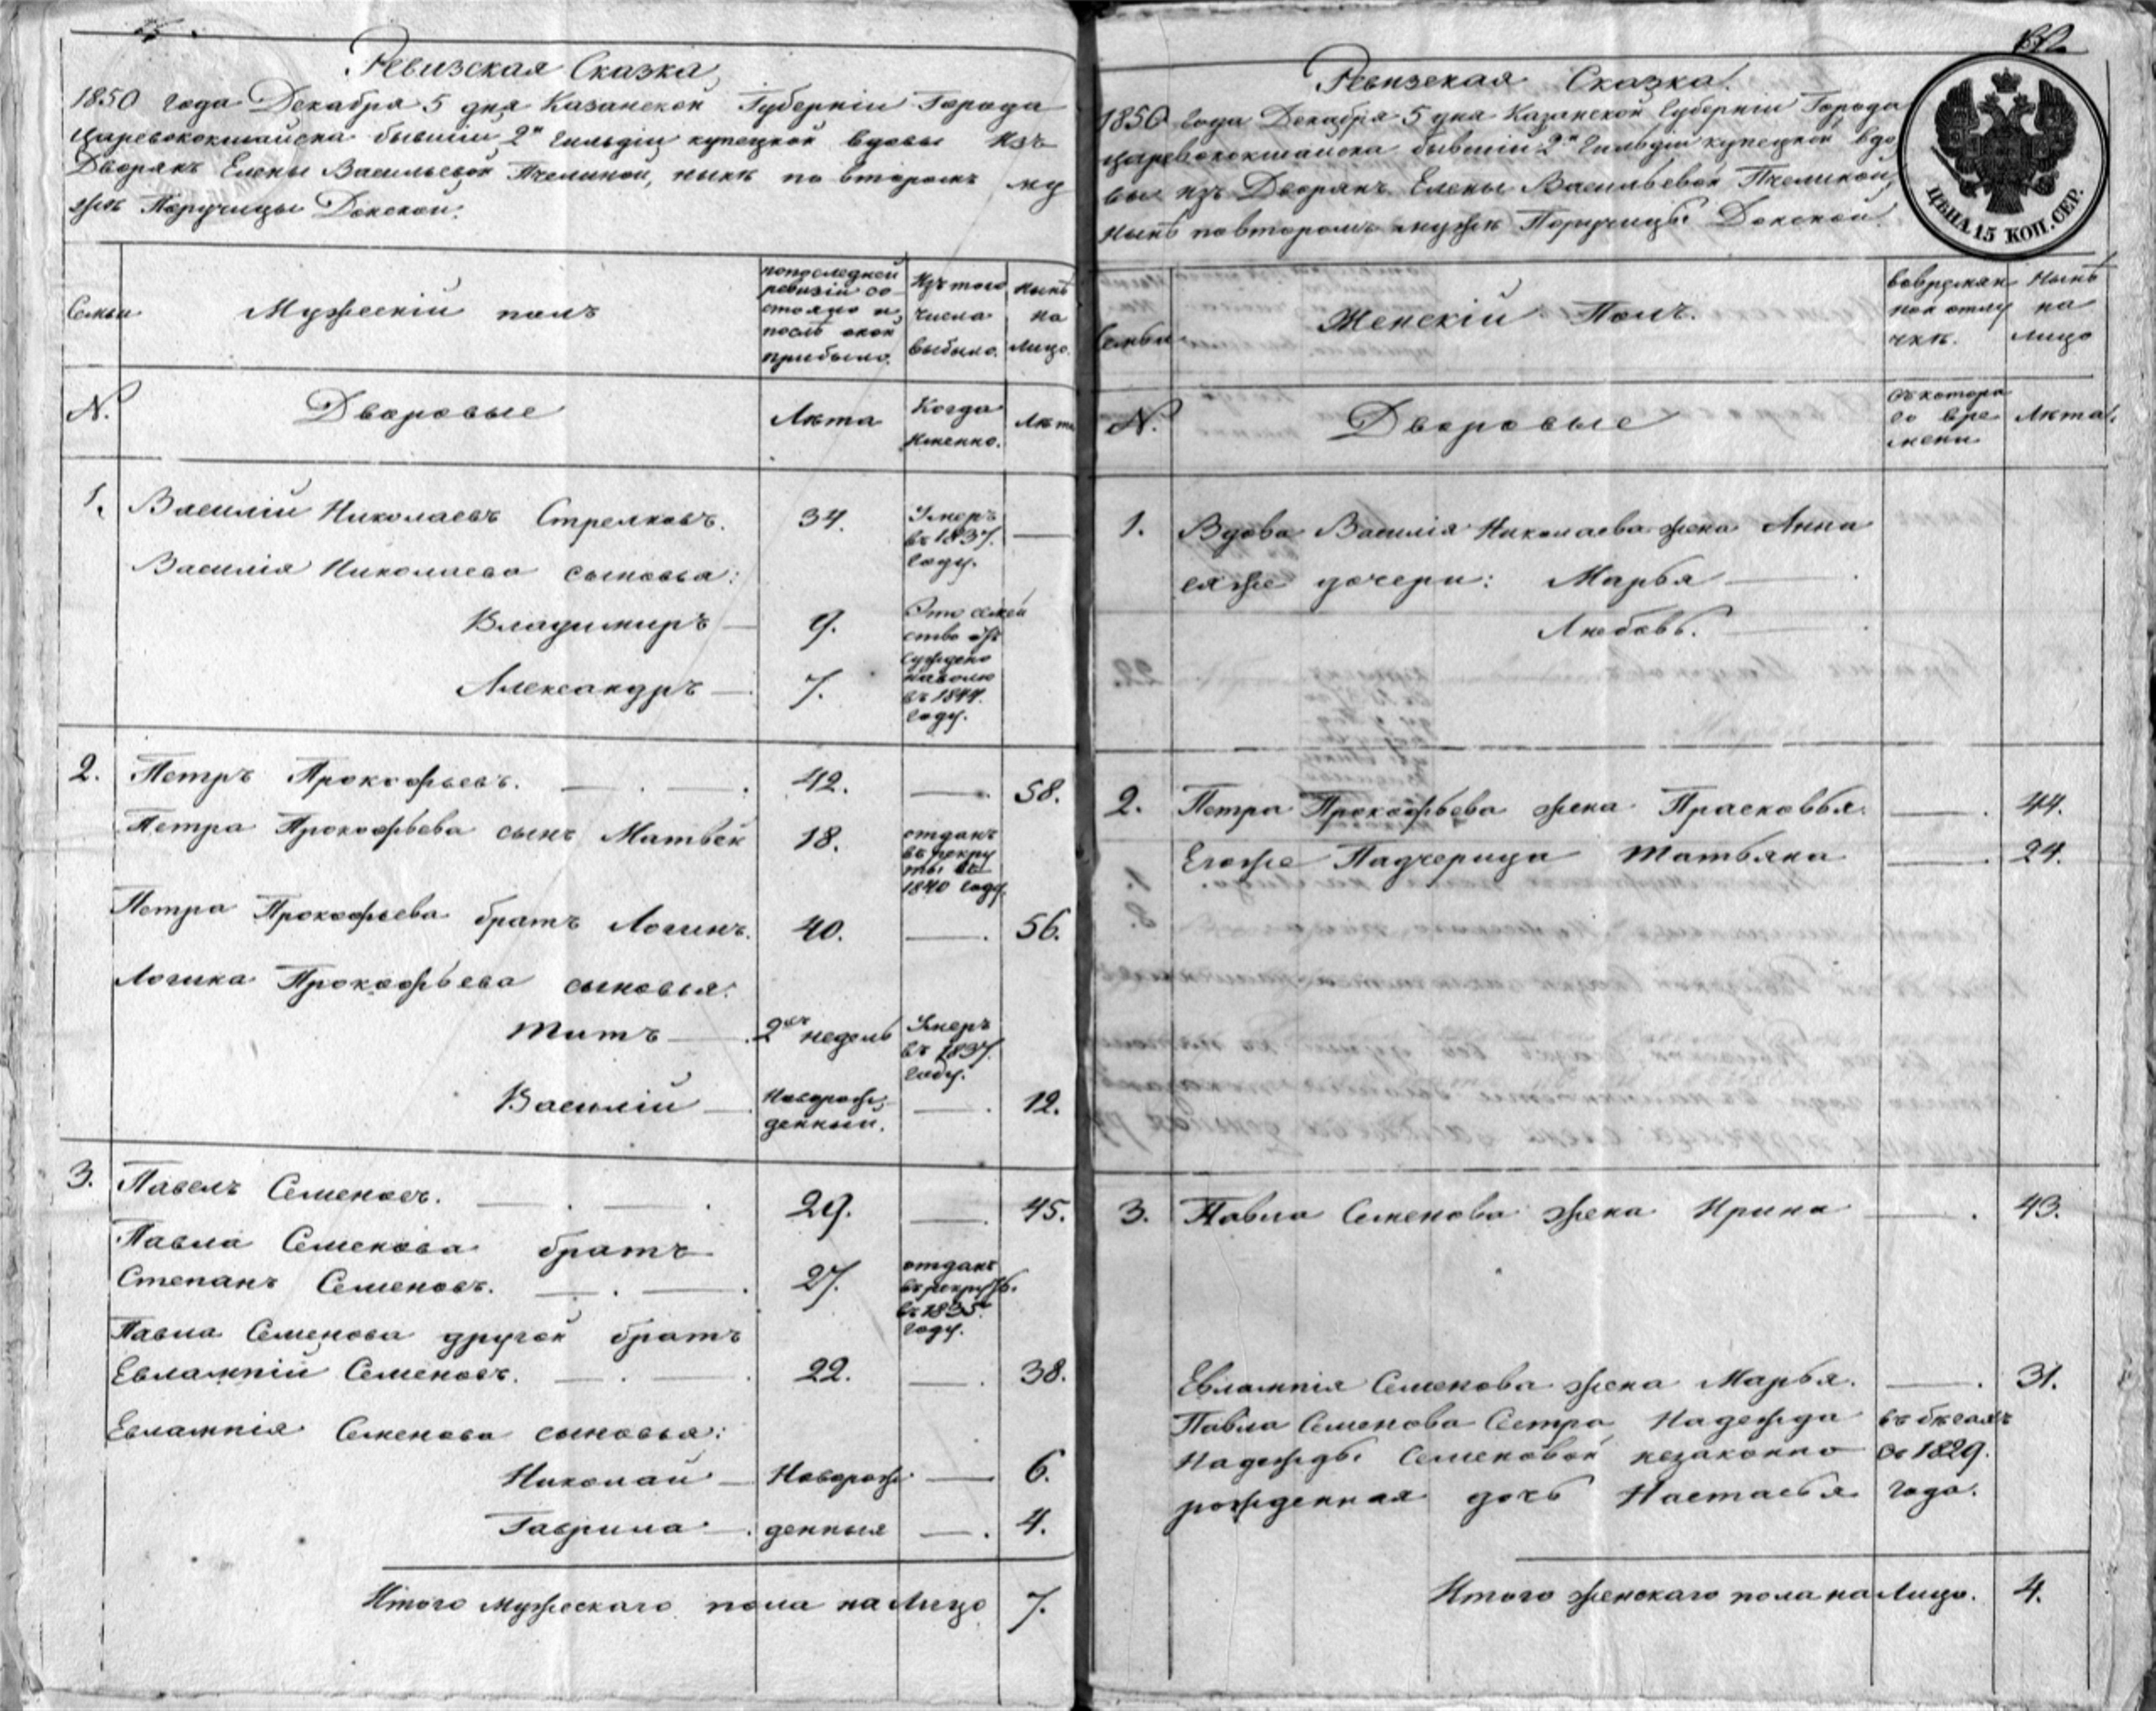 Ревизская Сказка
1850 года Декабря 5 дня Казанской Губерніи Города
Царевококшайска бывшіи 2й Гильдіи купецкой вдовы Изъ
Дворянъ Елены Васильевой Пчелиной, нынѣ по второмъ му
жѣ Поручицы Донской.
Семьи
Мужескій полъ
попоследней
ревизіи со
стояло и
послѣ оной
прибыло.
Изъ того
числа
выбыло.
Нынѣ
на
лицо.
N.
Дворовые
Лѣта
Когда
Именно.
Лѣта
1.
Василій Николаевъ Стрелковъ.
34.
Умеръ
въ 1837.
году.
Василія Николаева сыновья:
Владимиръ
9.
Это семей
ство от
суждено
наволю
въ 1844.
году.
Александръ
7.
2.
Петръ Прокофьевъ.
42.
58.
Петра Прокофьева сынъ Матвей
18.
отданъ
въ рекру
ты въ
1840 году.
Петра Прокофьева братъ Логинъ.
40.
56.
Логина Прокофьева сыновья:
Титъ
2хъ недель
Умеръ
въ 1837.
году.
Василій
Новорож
денный.
12.
3.
Павелъ Семеновъ.
29.
45.
Павла Семенова братъ
Степанъ Семеновъ.
27.
отданъ
въ рекруты.
въ 1835
году.
Павла Семенова другой братъ
Евлампій Семеновъ.
22.
38.
Евлампія Семенова сыновья:
Николай
Новорож
6.
Гаврила
денныя
4.
Итого мужескаго пола на Лицо
7.
Ревизская Сказка.
1850 года Декабря 5 дня Казанской Губерніи Города
Царевококшайска бывшіи 2й Гильдіи купецкой вдо
вы изъ Дворянъ Елены Васильевой Пчелиной,
нынѣ повторомъ мужѣ Поручицы Донской.
ЦѢНА 15 КОП. СЕР.
Семьи
Женскій Полъ.
вовремян
ной отлу
чкѣ.
Нынѣ
на
лицо
N.
Дворовые
съ котора
го вре
мени
Лѣта.
1.
Вдова Василія Николаева жена Анна
ея же дочери: Марья
Любовь.
2.
Петра Прокофьева жена Прасковья
44.
Егоже Падчерица Татьяна
24.
3.
Павла Семенова жена Ирина
43.
Евлампія Семенова жена Марья.
31.
Павла Семенова Сестра Надежда
въ бѣгахъ
Надежды Семеновой незаконно
съ 1829.
рожденная дочь Настасья
года.
Итого женскаго пола на Лицо.
4.